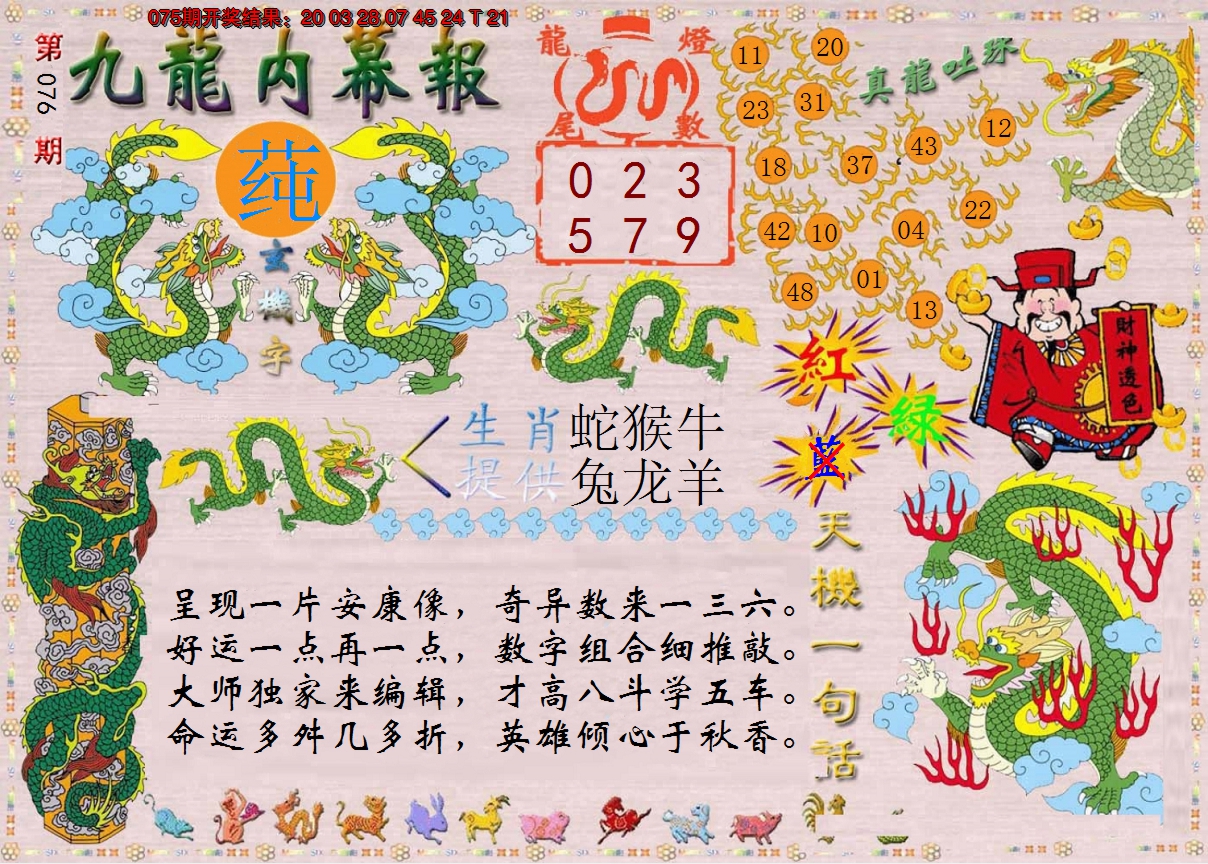 075期开奖结果：20 03 28 07 45 24 T 21
第
076
期
九龍内幕報
莼
玄
機
字
龍
燈
尾
數
0 2 3
5 7 9
真龍吐珠
11
20
23
31
18
37
43
12
42
10
04
22
48
01
13
財神透色
紅
綠
藍
生肖
提供
蛇猴牛
兔龙羊
天機一句話
呈现一片安康像，奇异数来一三六。
好运一点再一点，数字组合细推敲。
大师独家来编辑，才高八斗学五车。
命运多舛几多折，英雄倾心于秋香。